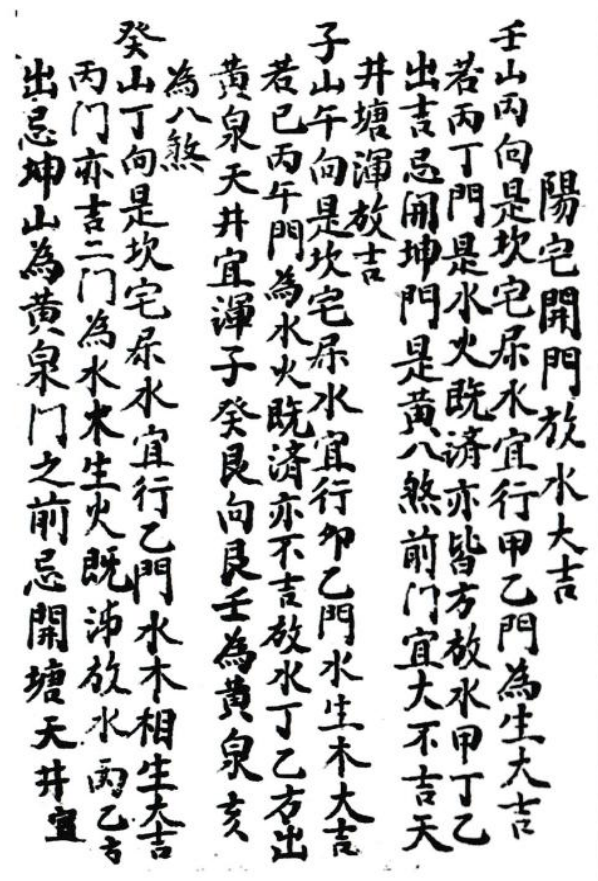 陽宅開門放水大吉
壬山丙向是坎宅屬水宜行甲乙門為生大吉
若丙丁門是水火既濟亦皆方放水甲丁乙
出吉忌開坤門是黃八煞前门宜大不吉天
井塘渾放吉
子山午向是坎宅屬水宜行卯乙門水生木大吉
若巳丙午門為水火既濟亦不吉放水丁乙方出
黃泉天井宜渾子癸艮向艮壬為黃泉亥
為八煞
癸山丁向是坎宅屬水宜行乙門水木相生大吉
丙门亦吉二门為水木生火既沛放水丙乙方
出忌坤山為黃泉门之前忌開塘天井宜